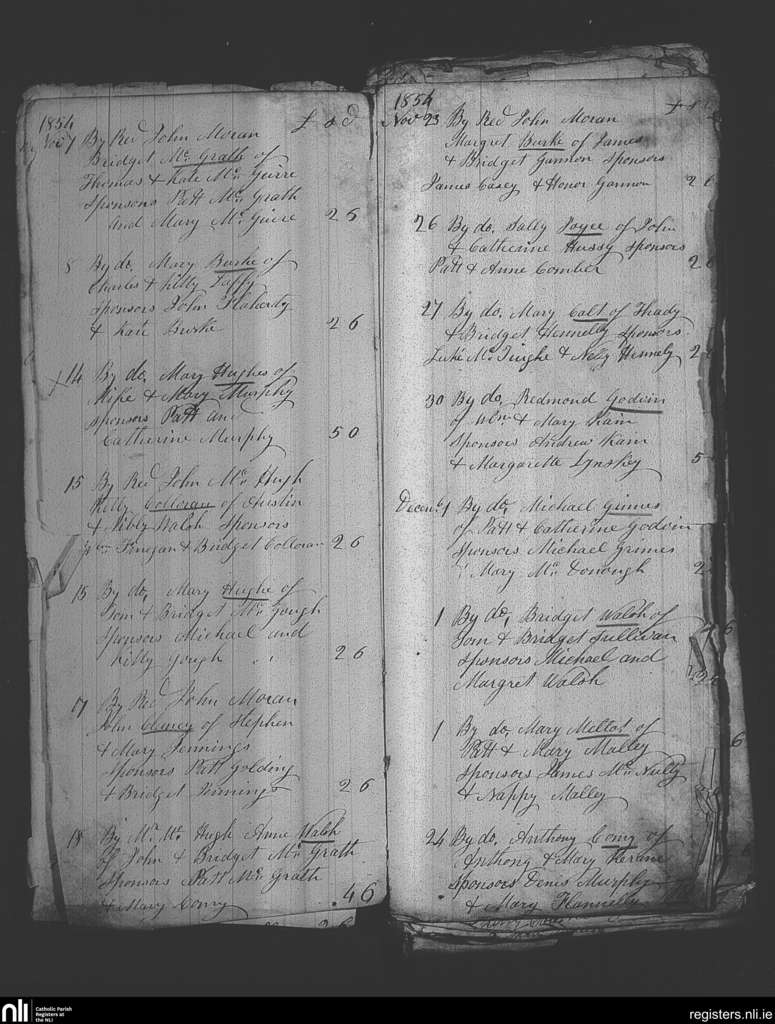 1854 £ s d
Nov 7 By Red John Moran
Bridget Mc Grath of
Thomas & Kate Mc Guire
Sponsors Patt Mc Grath
and Mary Mc Guire 2 6
8 By do. Mary Burke of
Charles & Kitty
Sponsors John Flaherty
& Kate Burke 2 6
14 By do, Mary Hughes of
Mike & Mary Murphy
sponsors Patt and
Catherine Murphy 5 0
15 By Red John Mc Hugh
Kitty Colloran of Austin
& Sibby Walsh Sponsors
Finegan & Bridget Colloran 2 6
15 By do, Mary Hughe of
Tom & Bridget Mc Gough
Sponsors Michael and
Kitty Gough 2 6
17 By Red John Moran
John Clancy of Stephen
& Mary Jennings
Sponsors Patt Golding
& Bridget Jennings 2 6
18 By Mr Mc Hugh Anne Walsh
of John & Bridget Mc Grath
Sponsors Patt Mc Grath
& Mary Conry 4 6
2 6
1854 £ s
Nov 23 By Red John Moran
Margret Burke of James
& Bridget Gannon Sponsors
James Casey & Honor Gannon 2 6
26 By do. Sally Joyce of John
& Catherine Hussy Sponsors
Patt & Anne Comber 2
27 By do. Mary Colt of Thady
& Bridget Hennelly Sponsors
Luke Mc & Nelly Hennely 2
30 By do, Redmond Godwin
of Wm & Mary Kain
Sponsors Andrew Kain
& Margaretta Lynskey 5
Decemb 1 By do, Michael Grimes
of Patt & Catherine Godwin
Sponsors Michael Grimes
Mary Mc Donough 2
1 By do, Bridget Walsh of
Tom & Bridget Sullivan
Sponsors Michael and
Margret Walsh
1 By do, Mary Mellot of
Patt & Mary Malley
Sponsors James Mc Nulty
& Nappy Malley
24 By do, Anthony Conry of
Anthony & Mary Kerane
Sponsors Denis Murphy
& Mary Flannelly
nli Catholic Parish
Registers at
the NLI
registers.nli.ie